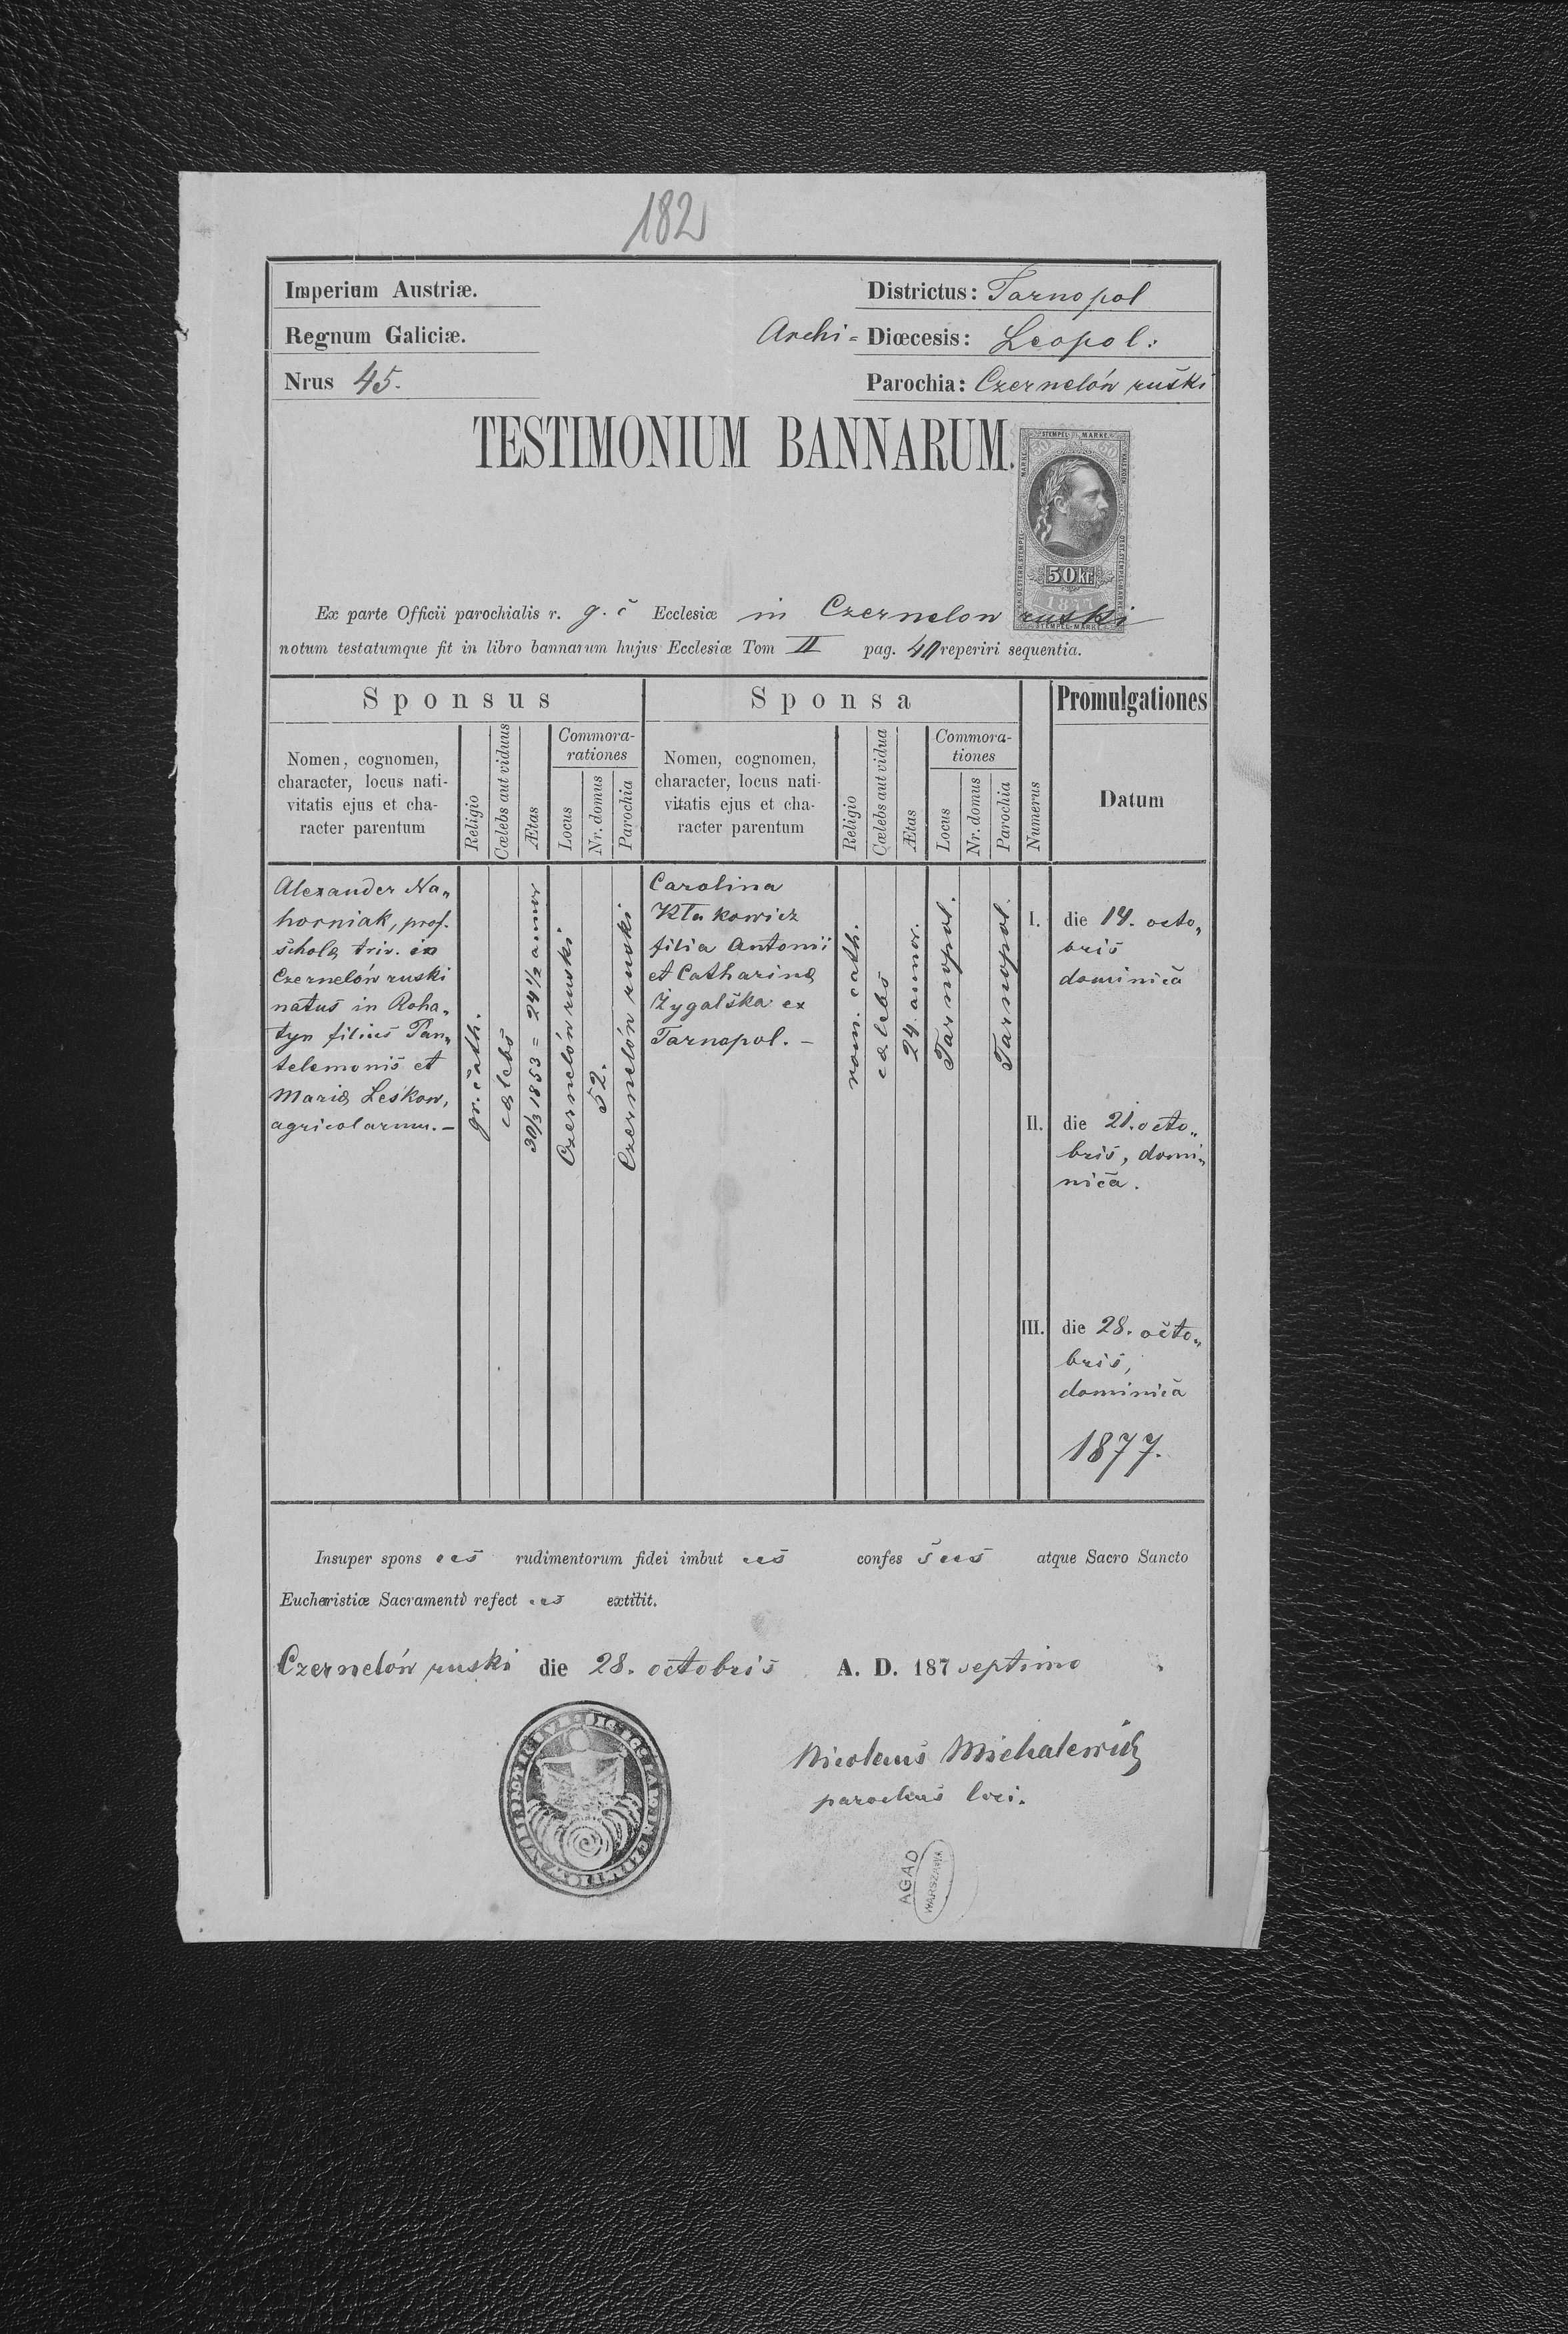 182
Imperium Austriæ.
Districtus: Tarnopol
Regnum Galiciæ.
Archi= Diœcesis: Leopol:
Nrus 45.
Parochia: Czernelón ruski
TESTIMONIUM BANNARUM.
STEMPEL MARKE
50 Kr
1877
STEMPEL-MARKE
Ex parte Officii parochialis r. g. c Ecclesiæ in Czernelon ruski
notum testatumque fit in libro bannarum hujus Ecclesiæ Tom II pag. reperiri sequentia.
Sponsus
Sponsa
Promulgationes
Nomen, cognomen,
character, locus nati-
vitatis ejus et cha-
racter parentum
Religio
Cœlebs aut viduus
Ætas
Commora-
rationes
Locus
Nr. domus
Parochia
Nomen, cognomen,
character, locus nati-
vitatis ejus et cha-
racter parentum
Religio
Cœlebs aut vidua
Ætas
Commora-
tiones
Locus
Nr. domus
Parochia
Numerus
Datum
Alexander Na„
horniak, prof.
scholæ triv. in
Czernelón ruski
natus in Roha„
tyn filius Pan„
telemonis et
Mariæ Leskow,
agricolarum.–
gr. cath.
cælebs
30/3 1853 = 24 1/2 annor
Czernelón ruski
52.
Czernelón ruski
Carolina
Kłakowicz
filia Antonii
et Catharinæ
Żygalska ex
Tarnopol. –
rom. cath.
cælebs
24 annor.
Tarnopol.
Tarnopol.
I. die 14. octo„
bris
dominica
II. die 21. octo„
bris, domi„
nica.
III. die 28. octo„
bris,
dominica
1877.
Insuper spons us rudimentorum fidei imbut us confes sus atque Sacro Sancto
Eucharistiæ Sacramento refect us extitit.
Czernelón ruski die 28. octobris A. D. 187 septimo
Nicolaus Michalewicz
parochus loci.
AGAD
WARSZAWA